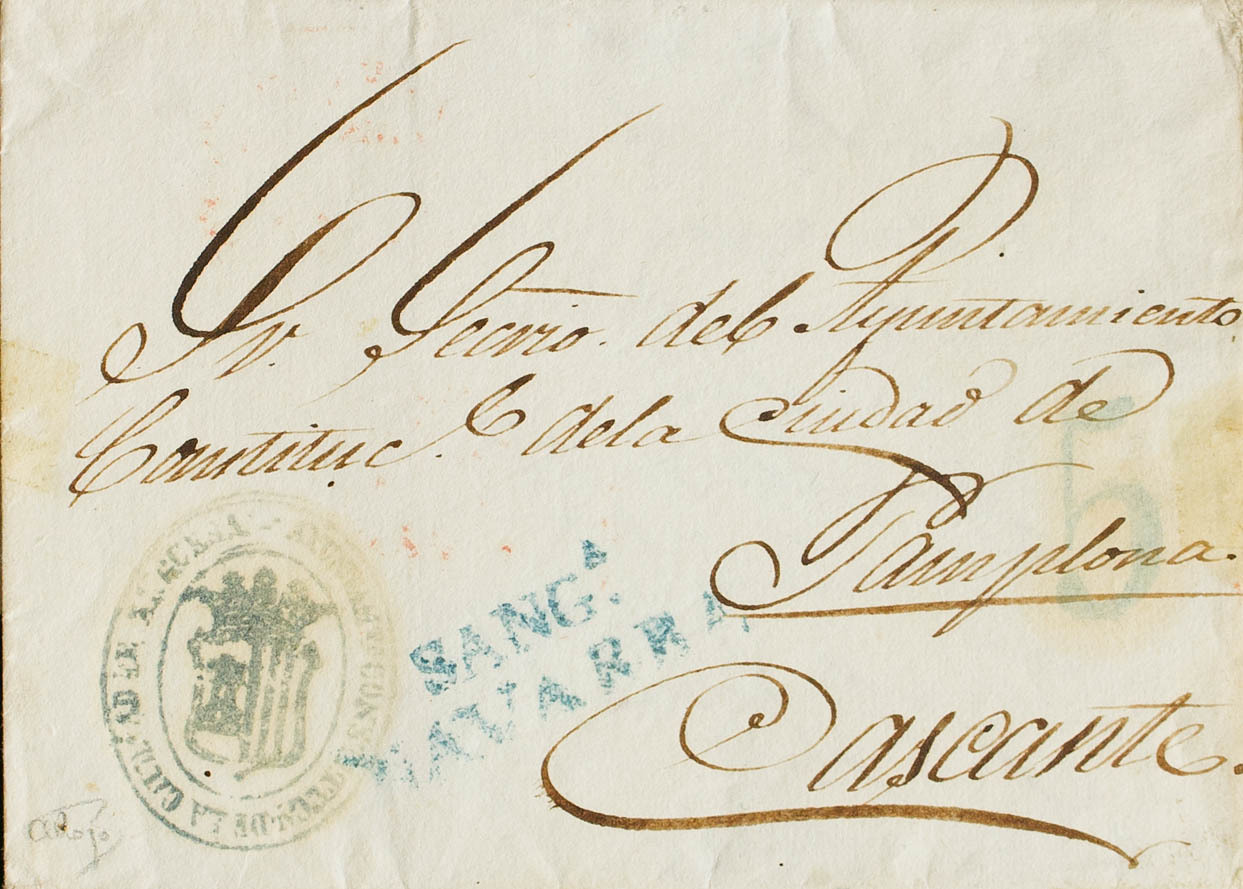 Sr. Secrio. del Ayuntamiento
Constituc.l de la Ciudad de
Pamplona.
Cascante.
SANG.A
NAVARRA
6
AYUNTAMTO CONST
DE LA CIUDAD DE